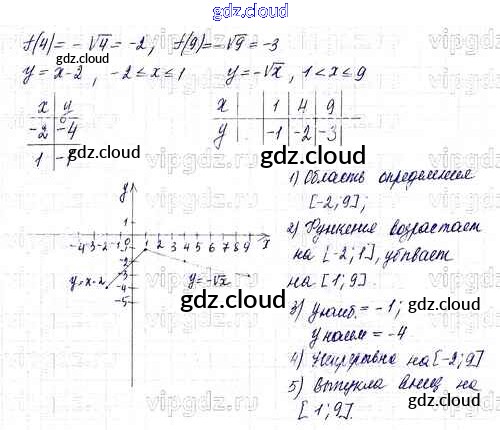 gdz.cloud
f(4)= -√4 = -2; f(9)= -√9 = -3
y = x-2, -2 ≤ x ≤ 1 y = -√x, 1 < x ≤ 9
x y
-2 -4
1 -1
x 1 4 9
y -1 -2 -3
gdz.cloud
gdz.cloud
1) Область определения
[-2; 9];
2) Функция возрастает
на [-2; 1], убывает
на [1; 9].
3) y наиб. = -1;
y наим = -4
4) Непрерывна на [-2; 9]
5) Выпукла вниз на
[1; 9].
y
1
-4 -3 -2 -1 0 1 2 3 4 5 6 7 8 9 x
-2
-3
-4
-5
y = x-2
y = -√x
gdz.cloud
gdz.cloud
vipgdz.ru